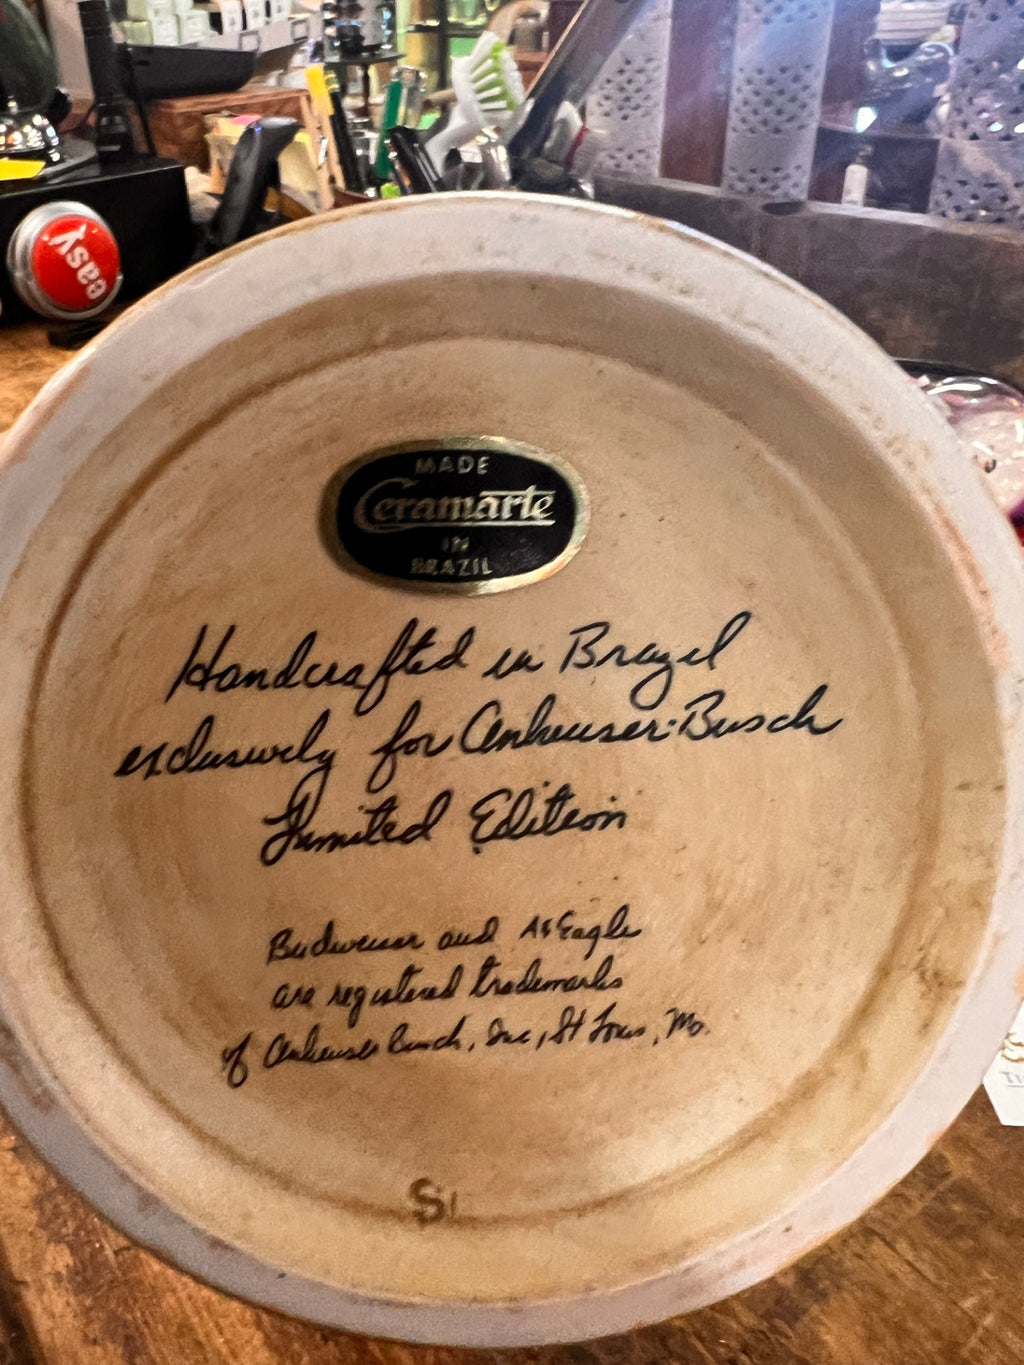 easy
MADE
Ceramarte
IN
BRAZIL
Handcrafted in Brazil
exclusively for Anheuser-Busch
Limited Edition
Budweiser and A & Eagle
are registered trademarks
of Anheuser Busch, Inc, St Louis, Mo.